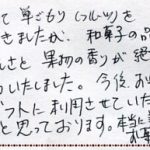 て 草ごもり(フルーツ)を
きましたが、和菓子の
しさと 果物の香りが 絶
いたしました。今後、お
フトに利用させていた
と思っております。本当に
お